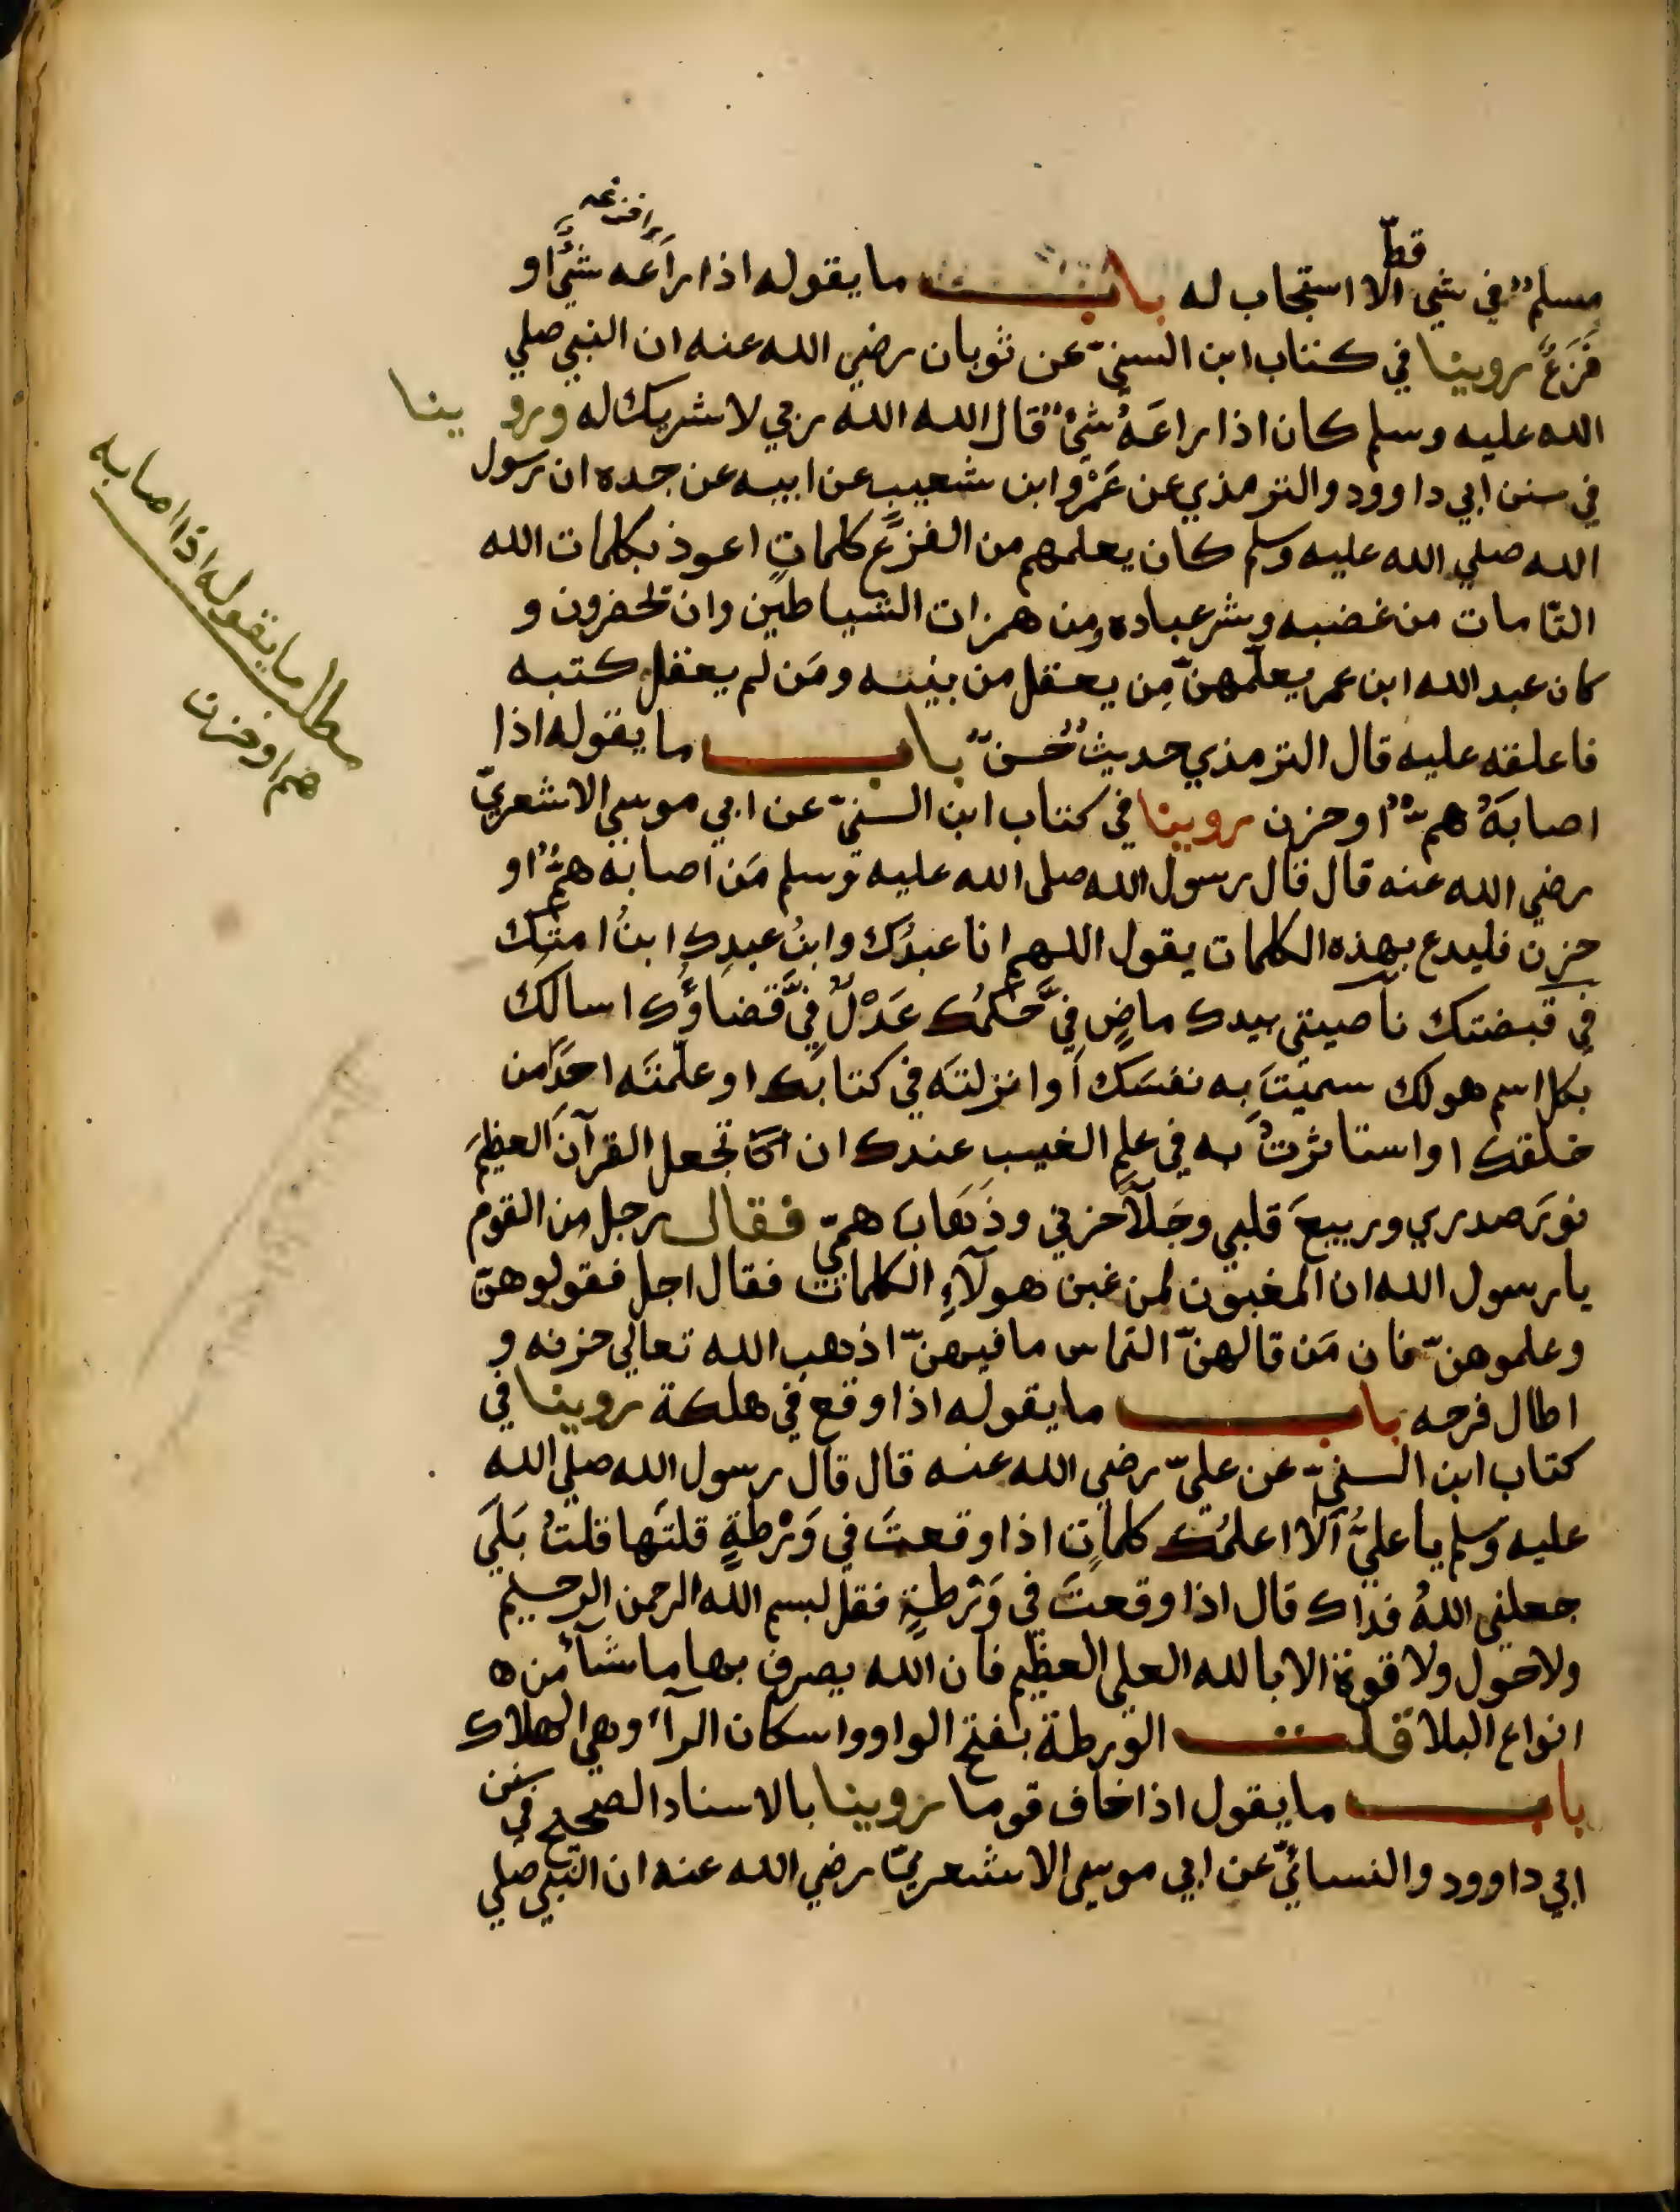 قطّ
او افزعه
مسلمٌ في شي الا استجاب له باب ما يقوله اذا راَعَه شيٌ او
فَزَعٌ روينا في كتاب ابن السنيّ عن ثوبان رضي الله عنه ان النبي صلي
الله عليه وسلم كان اذا راعَهُ شيٌ قال الله الله ربي لا شريك له وروينا
في سنن ابي داوود والترمذي عن عَمْرو ابن شعيبٍ عن ابيه عن جده ان رسول
الله صلي الله عليه وسلم كان يعلمهم من الفزعَ كلماتٍ اعوذ بكلمات الله
التّامات من غضبه وشر عباده ومن همزات الشياطين وان يحضرون و
كان عبد الله ابن عمر يعلّمهنّ مِن يعقل من بنيه ومَن لم يعقل كتبه
فاعلقه عليه قال الترمذي حديثٌ حُسنٌ باب ما يقوله اذا
اصابَهُ همٌّ او حزن روينا في كتاب ابن السنيّ عن ابي موسي الاشعريّ
رضي الله عنه قال قال رسول الله صلى الله عليه وسلم مَن اصابه همٌّ او
حزن فليدع بهذه الكلمات يقول اللهم انا عبدُك وابنُ عبدِك ابنُ امتِك
في قبضتك ناصيتي بيدك ماضٍ فيَّ حُكمُك عَدْلٌ فيَّ قَضاؤُك اسالك
بكل اسم هو لك سميْتَ به نفسَك اَو انزلتَه في كتابِك او علّمتَه احَدًا من
خلقك او استاثرتْ به في علم الغيب عندك ان تجعل القرآنَ العظيمَ
نورَ صدري وربيعَ قلبي وجَلآَ حزني وذَهَابَ همّي فقال رجل من القوم
يا رسول الله ان المغبون لمن غبن هولآءِ الكلمات فقال اجل فقولوهنّ
وعلموهنّ فان مَن قالهنّ التماس ما فيهنّ اذهب الله تعالي حزنه و
اطال فرحه باب ما يقوله اذا وقع في هلكة روينا في
كتاب ابن السنيّ عن عليّ رضي الله عنه قال قال رسول الله صلي الله
عليه وسلم يا عليُّ اَلا اعلمُك كلماتٍ اذا وقعتَ في وَرْطةٍ قلتَها قلتُ بَلَي
جعلني اللهُ فداك قال اذا وقعتَ في وَرْطةٍ فقل بسم الله الرحمن الرحيم
ولا حول ولا قوة الا بالله العلي العظيم فان الله يصرف بها ما شآء من ه
انواع البلا قلت الورطة بفتح الواو واسكان الرآء وهي الهلاك
باب ما يقول اذا خاف قوما روينا بالاسناد الصحيح في سنن
ابي داوود والنسائيّ عن ابي موسى الاشعريّ رضي الله عنه ان النبي صلي
مطالـ ما يقوله اذا اصابه
هم او حزن